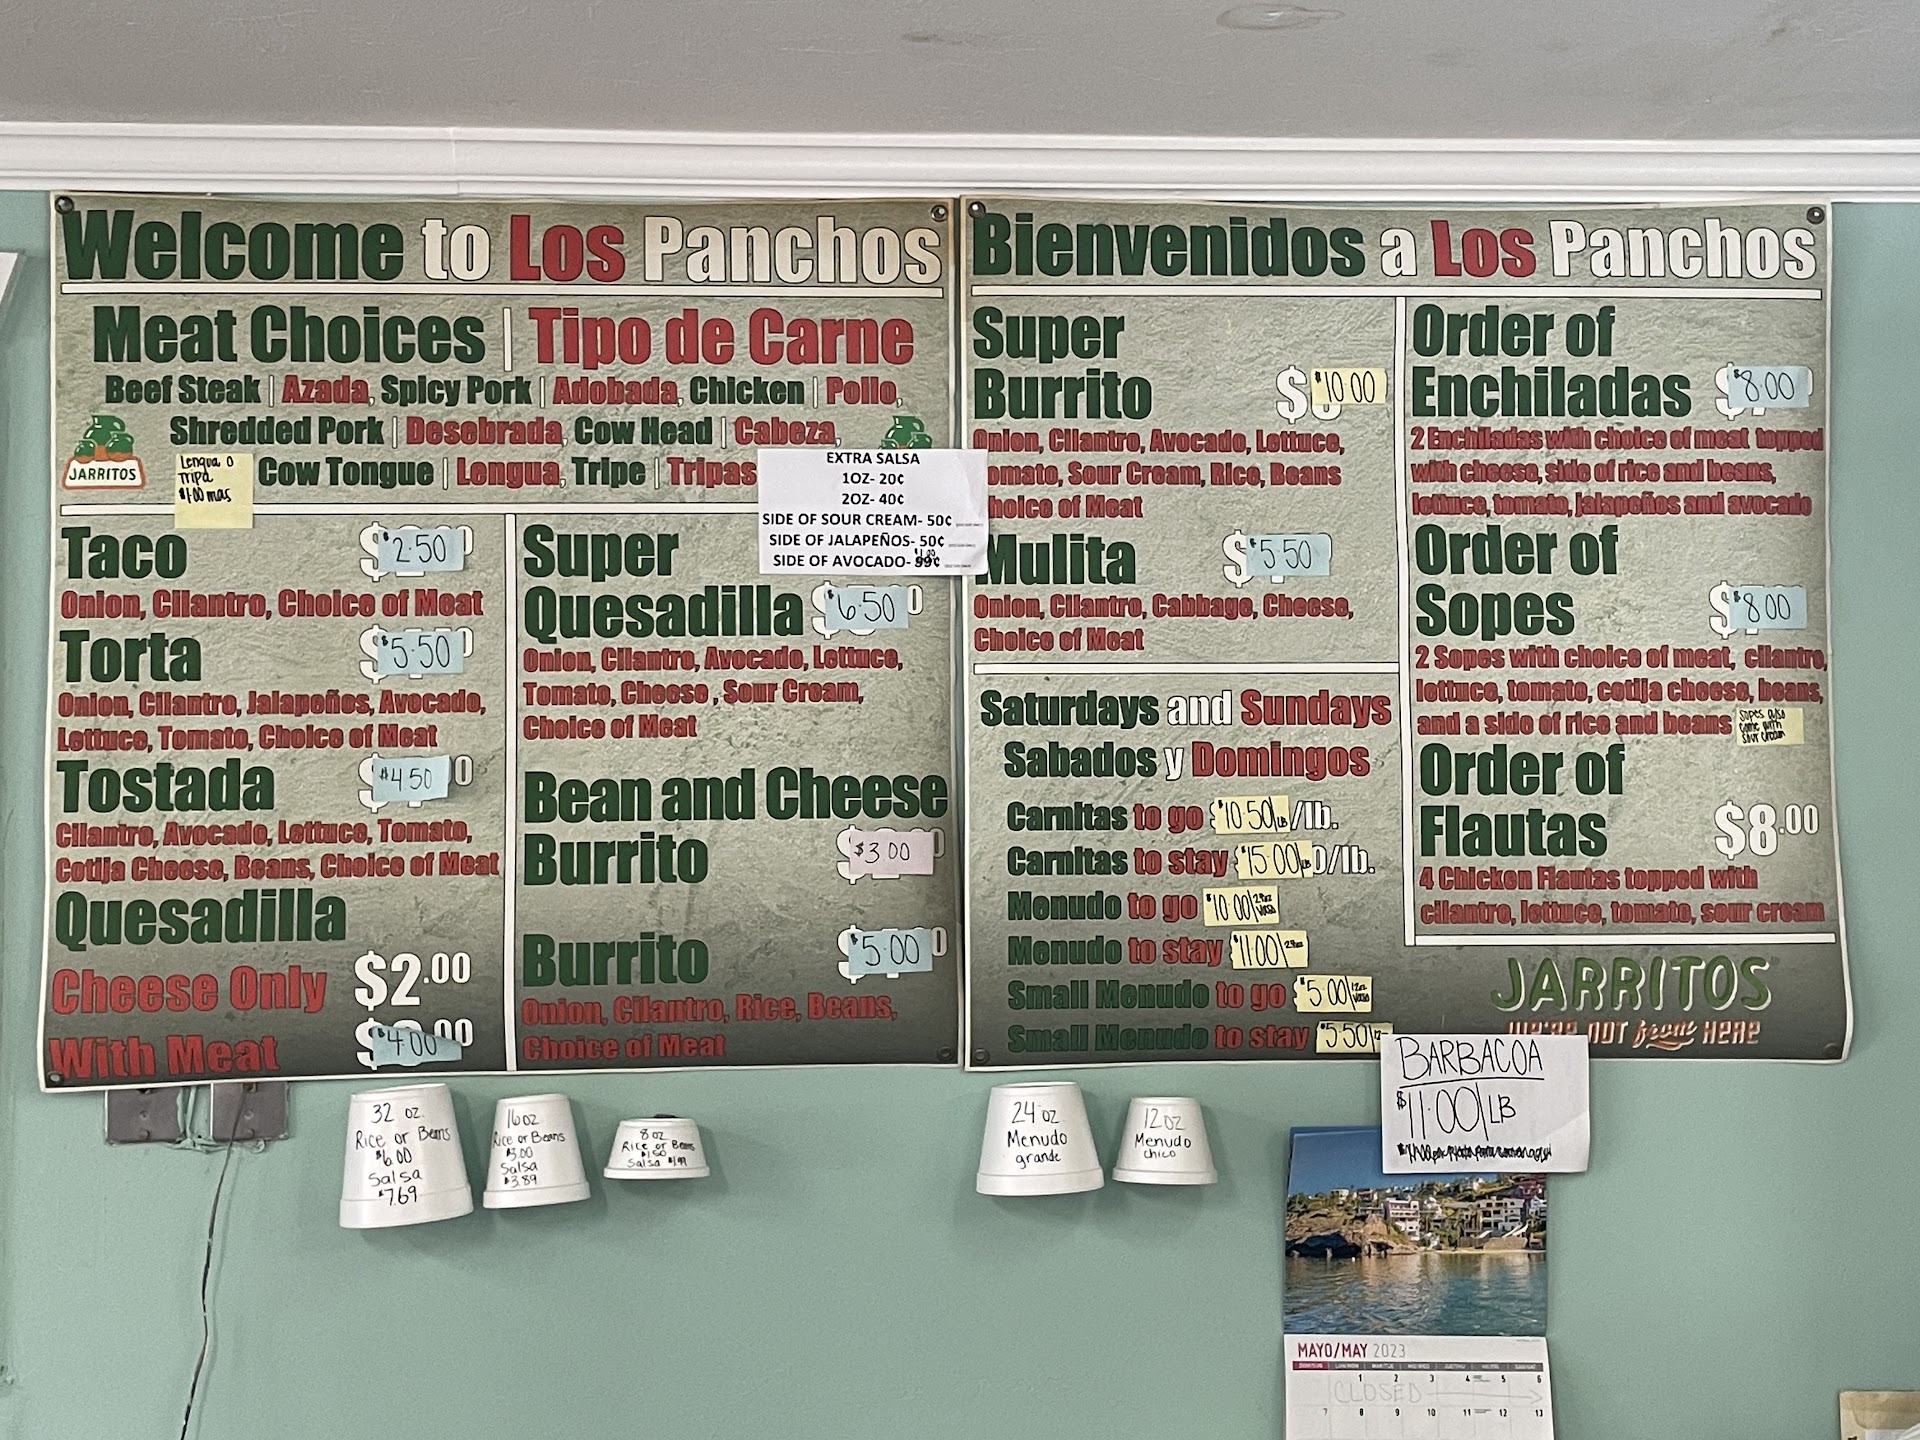 Welcome to Los Panchos
Meat Choices | Tipo de Carne
Beef Steak | Azada, Spicy Pork | Adobada, Chicken | Pollo,
Shredded Pork | Desebrada, Cow Head | Cabeza,
Cow Tongue | Lengua, Tripe | Tripas
JARRITOS
Lengua o
Tripa
$1.00 mas
EXTRA SALSA
1OZ- 20¢
2OZ- 40¢
SIDE OF SOUR CREAM- 50¢
SIDE OF JALAPEÑOS- 50¢
SIDE OF AVOCADO- 99¢
$1.00
Taco $2.50
Onion, Cilantro, Choice of Meat
Torta $5.50
Onion, Cilantro, Jalapeños, Avocado,
Lettuce, Tomato, Choice of Meat
Tostada $4.50
Cilantro, Avocado, Lettuce, Tomato,
Cotija Cheese, Beans, Choice of Meat
Quesadilla
Cheese Only $2.00
With Meat $4.00
Super
Quesadilla $6.50
Onion, Cilantro, Avocado, Lettuce,
Tomato, Cheese , Sour Cream,
Choice of Meat
Bean and Cheese
Burrito $3.00
Burrito $5.00
Onion, Cilantro, Rice, Beans,
Choice of Meat
Bienvenidos a Los Panchos
Super
Burrito $10.00
Onion, Cilantro, Avocado, Lettuce,
Tomato, Sour Cream, Rice, Beans
Choice of Meat
Mulita $5.50
Onion, Cilantro, Cabbage, Cheese,
Choice of Meat
Saturdays and Sundays
Sabados y Domingos
Carnitas to go $10.50 LB/lb.
Carnitas to stay $15.00 LB/lb.
Menudo to go $10.00/24oz
Menudo to stay $11.00/24oz
Small Menudo to go $5.00/12oz
Small Menudo to stay $5.50/12
Order of
Enchiladas $8.00
2 Enchiladas with choice of meat topped
with cheese, side of rice and beans,
lettuce, tomato, jalapeños and avocado
Order of
Sopes $8.00
2 Sopes with choice of meat, cilantro,
lettuce, tomato, cotija cheese, beans,
and a side of rice and beans
Sopes also
come with
sour cream
Order of
Flautas $8.00
4 Chicken Flautas topped with
cilantro, lettuce, tomato, sour cream
JARRITOS
WE'RE NOT from HERE
BARBACOA
$11.00/LB
32 oz.
Rice or Beans
$6.00
Salsa
$7.69
16oz
Rice or Beans
$3.00
Salsa
$3.89
8 oz
Rice or Beans
$1.50
Salsa $1.99
24 oz
Menudo
grande
12oz
Menudo
chico
MAYO/MAY 2023
1 2 3 4 5 6
CLOSED
7 8 9 10 11 12 13